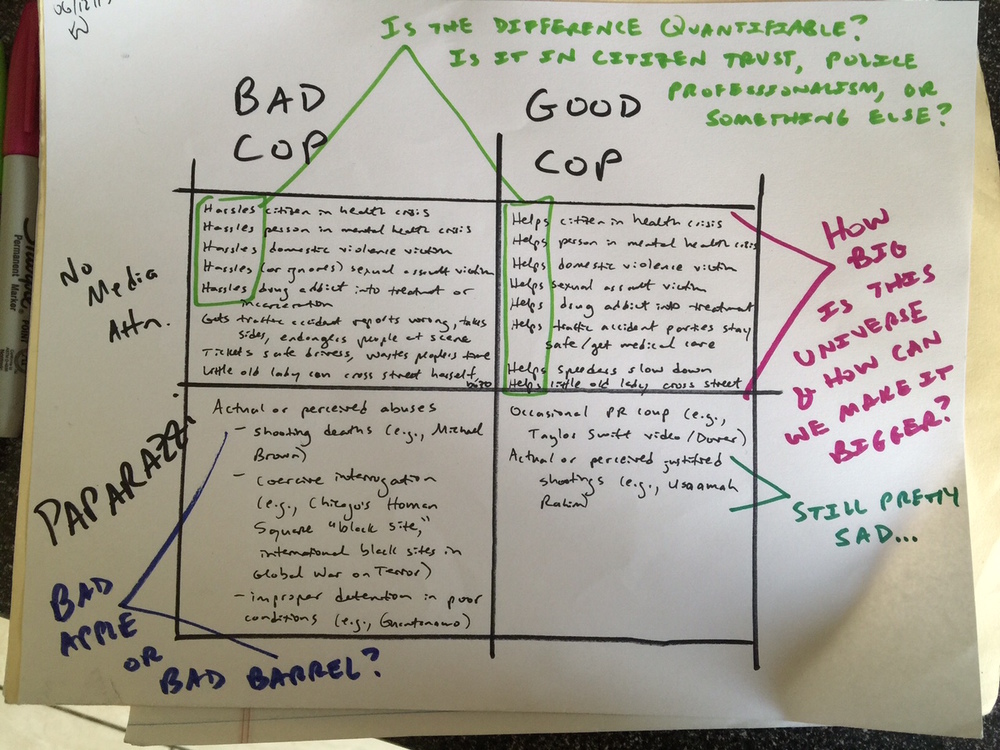 06/12/15
IS THE DIFFERENCE QUANTIFIABLE?
IS IT IN CITIZEN TRUST, POLICE
PROFESSIONALISM, OR
SOMETHING ELSE?
BAD
COP
GOOD
COP
No
Media
Attn.
Hassles citizen in health crisis
Hassles person in mental health crisis
Hassles domestic violence victim
Hassles (or ignores) sexual assault victim
Hassles drug addict into treatment or
incarceration
Gets traffic accident reports wrong, takes
sides, endangers people at scene
Tickets safe drivers, wastes peoples time
Little old lady can cross street herself,
Helps citizen in health crisis
Helps person in mental health crisis
Helps domestic violence victim
Helps sexual assault victim
Helps drug addict into treatment
Helps traffic accident parties stay
safe/get medical care
Helps speeders slow down
Helps little old lady cross street
HOW
BIG
IS THIS
UNIVERSE
& HOW CAN
WE MAKE IT
BIGGER?
PAPARAZZI
Actual or perceived abuses
- shooting deaths (e.g., Michael
Brown)
- coercive interrogation
(e.g., Chicago's Homan
Square "black site,"
international black sites in
Global War on Terror)
- improper detention in poor
conditions (e.g., Guantanamo)
Occasional PR coup (e.g.,
Taylor Swift video/Dover)
Actual or perceived justified
shootings (e.g., Usaamah
Rahim)
STILL PRETTY
SAD...
BAD
APPLE
OR
BAD BARREL?
Permanent Marker